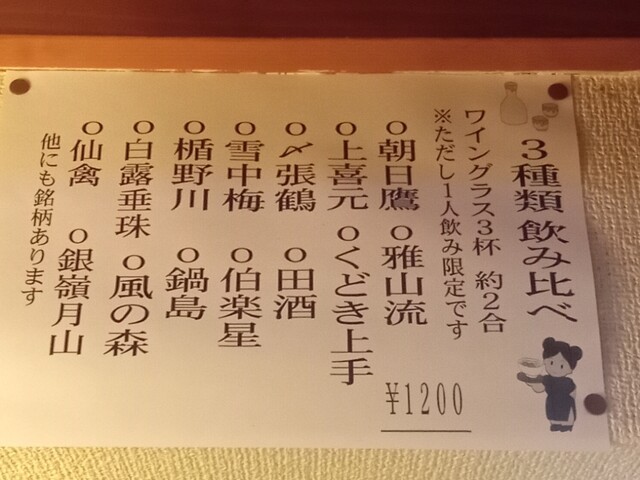 3種類飲み比べ
ワイングラス3杯 約2合
※ただし1人飲み限定です
○朝日鷹 ○雅山流
○上喜元 ○くどき上手
○〆張鶴 ○田酒
○雪中梅 ○伯楽星
○楯野川 ○鍋島
○白露垂珠 ○風の森
○仙禽 ○銀嶺月山
他にも銘柄あります
¥1200